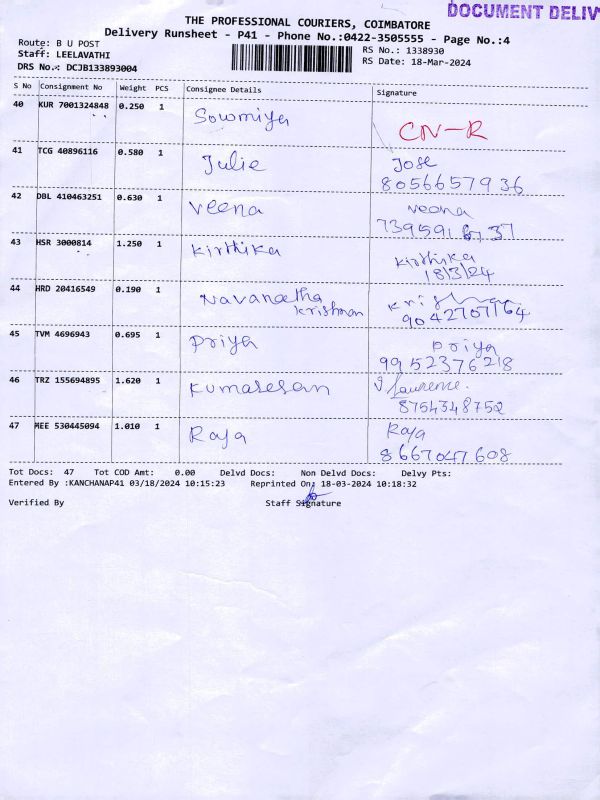 DOCUMENT DELIV
THE PROFESSIONAL COURIERS, COIMBATORE
Delivery Runsheet - P41 - Phone No.:0422-3505555 - Page No.:4
Route: B U POST
RS No.: 1338930
Staff: LEELAVATHI
RS Date: 18-Mar-2024
DRS No.: DCJB133893004
S No Consignment No Weight PCS Consignee Details Signature
40 KUR 7001324848 0.250 1 Sowmiya CN-R
41 TCG 40896116 0.580 1 Julie Jose
8056657936
42 DBL 410463251 0.630 1 Veena veena
43 HSR 3000814 1.250 1 Kirthika Kirthika
18/3/24
44 HRD 20416549 0.190 1 Navaneetha
Krishnan
9042707164
45 TVM 4696943 0.695 1 Priya Priya
9952376218
46 TRZ 155694895 1.620 1 Kumaresan
8754348752
47 MEE 530445094 1.010 1 Raja Raja
8667047608
Tot Docs: 47 Tot COD Amt: 0.00 Delvd Docs: Non Delvd Docs: Delvy Pts:
Entered By :KANCHANAP41 03/18/2024 10:15:23 Reprinted On: 18-03-2024 10:18:32
Verified By Staff Signature